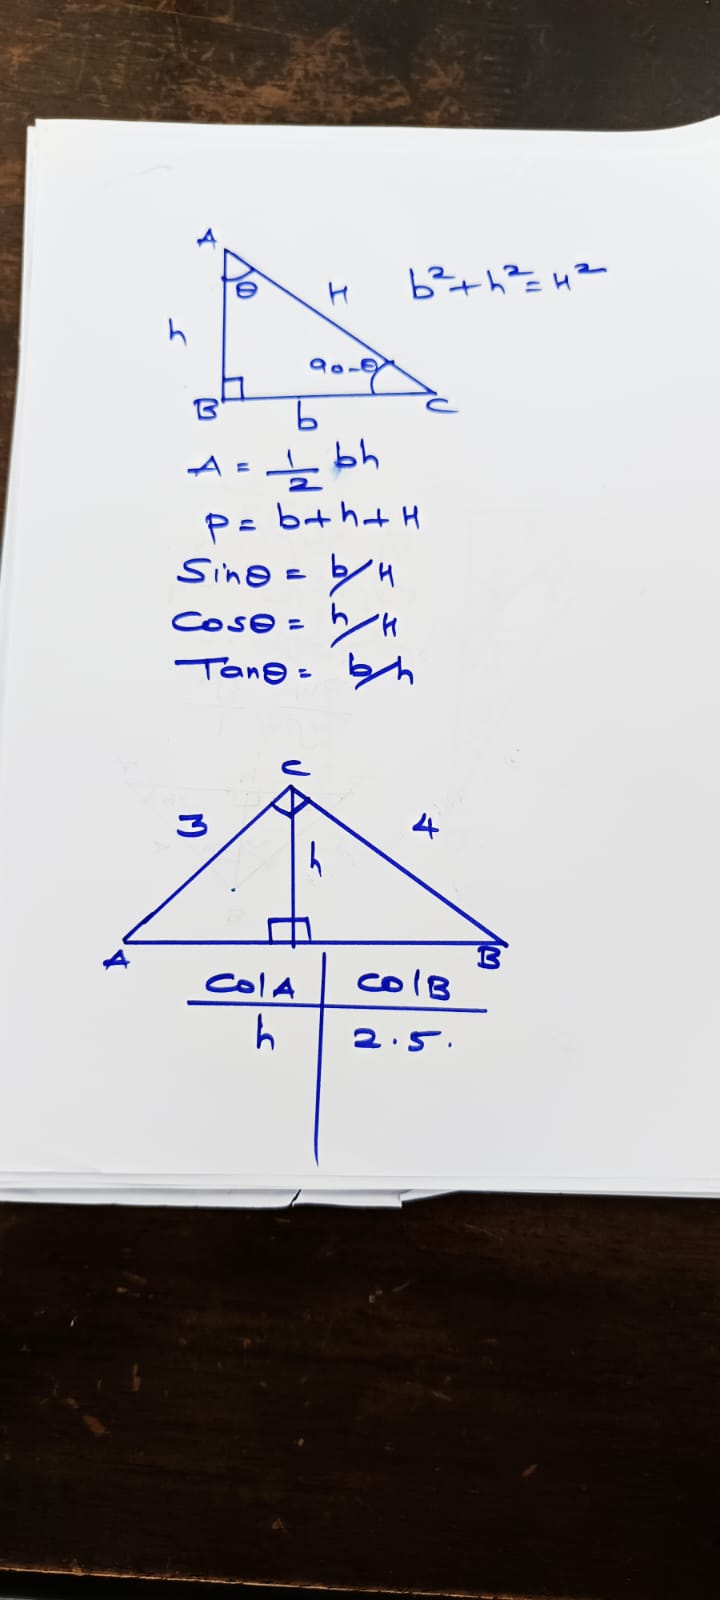 A
θ
H
b²+h²=H²
h
90-θ
B
b
C
A = 1/2 bh
P = b+h+H
Sinθ = b/H
Cosθ = h/H
Tanθ = b/h
C
3
4
h
A
B
Col A | Col B
h | 2.5.